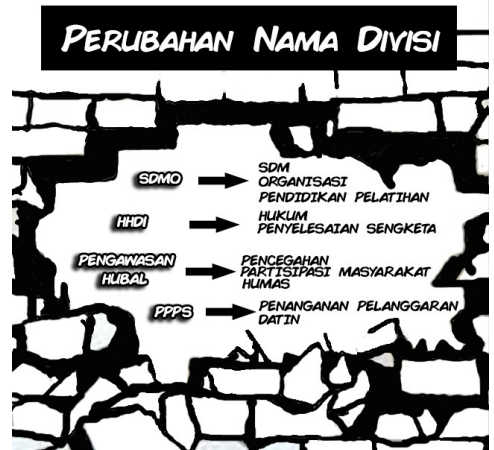 PERUBAHAN NAMA DIVISI
SDMO
SDM
ORGANISASI
PENDIDIKAN PELATIHAN
HHDI
HUKUM
PENYELESAIAN SENGKETA
PENGAWASAN
HUBAL
PENCEGAHAN
PARTISIPASI MASYARAKAT
HUMAS
PPPS
PENANGANAN PELANGGARAN
DATIN